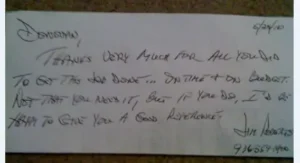 THANKS VERY MUCH FOR ALL YOU DID
TO GET THE JOB DONE... ON TIME + ON BUDGET.
NOT THAT YOU NEED IT, BUT IF YOU DO, I'D BE
HAPPY TO GIVE YOU A GOOD REFERENCE.
JIM